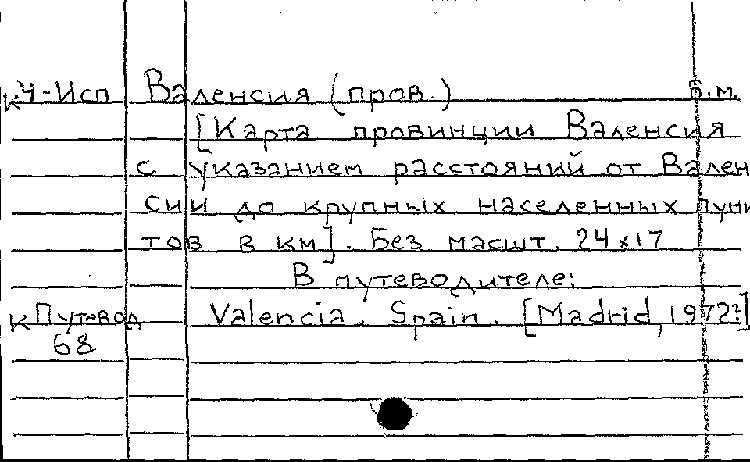 К4-Исп Валенсия (пров.) б.м.
[Карта провинции Валенсия
с указанием расстояний от Вален
сии до крупных населенных пунк
тов в км]. Без масшт. 24х17
В путеводителе:
К Путевод Valencia. Spain. [Madrid, 1972?]
68